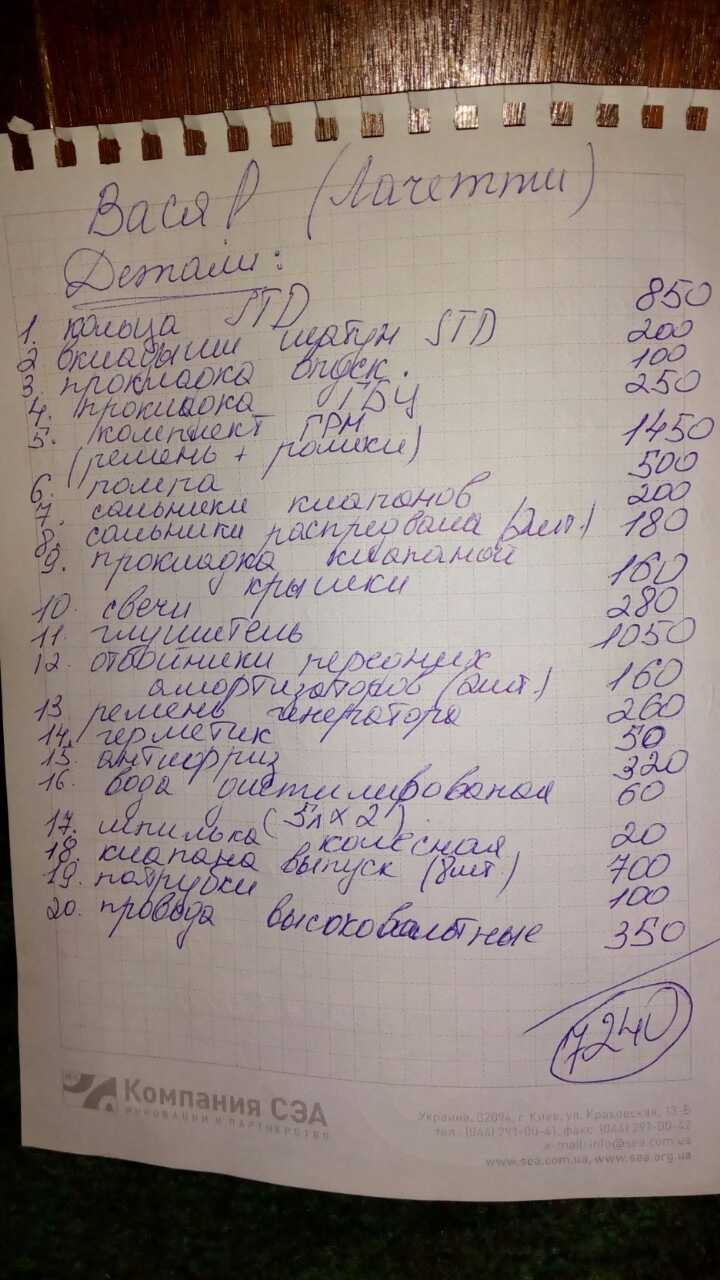 Вася Р (Лачетти)
Детали:
1. кольца STD 850
2 вкладыши шатун STD 200
3. прокладка впуск. 100
4. прокладка ГБЦ 250
5. комплект ГРМ
(ремень + ролики) 1450
6. помпа 500
7. сальники клапанов 200
8. сальники распредвала (2шт.) 180
9. прокладка клапаной
крышки 160
10. свечи 280
11. глушитель 1050
12. отбойники передних
амортизаторов (2шт.) 160
13. ремень генератора 260
14. герметик 50
15. антифриз 320
16. вода дистилированая 60
(5л х 2)
17. шпилька колёсная 20
18. клапана выпуск (8шт.) 700
19. патрубки 100
20. провода высоковольтные 350
7240
Компания СЭА
ИННОВАЦИИ И ПАРТНЕРСТВО
Украина, 02094, г. Киев, ул. Краковская, 13-Б
тел.: (044) 291-00-41, факс: (044) 291-00-42
e-mail: info@sea.com.ua
www.sea.com.ua, www.sea.org.ua